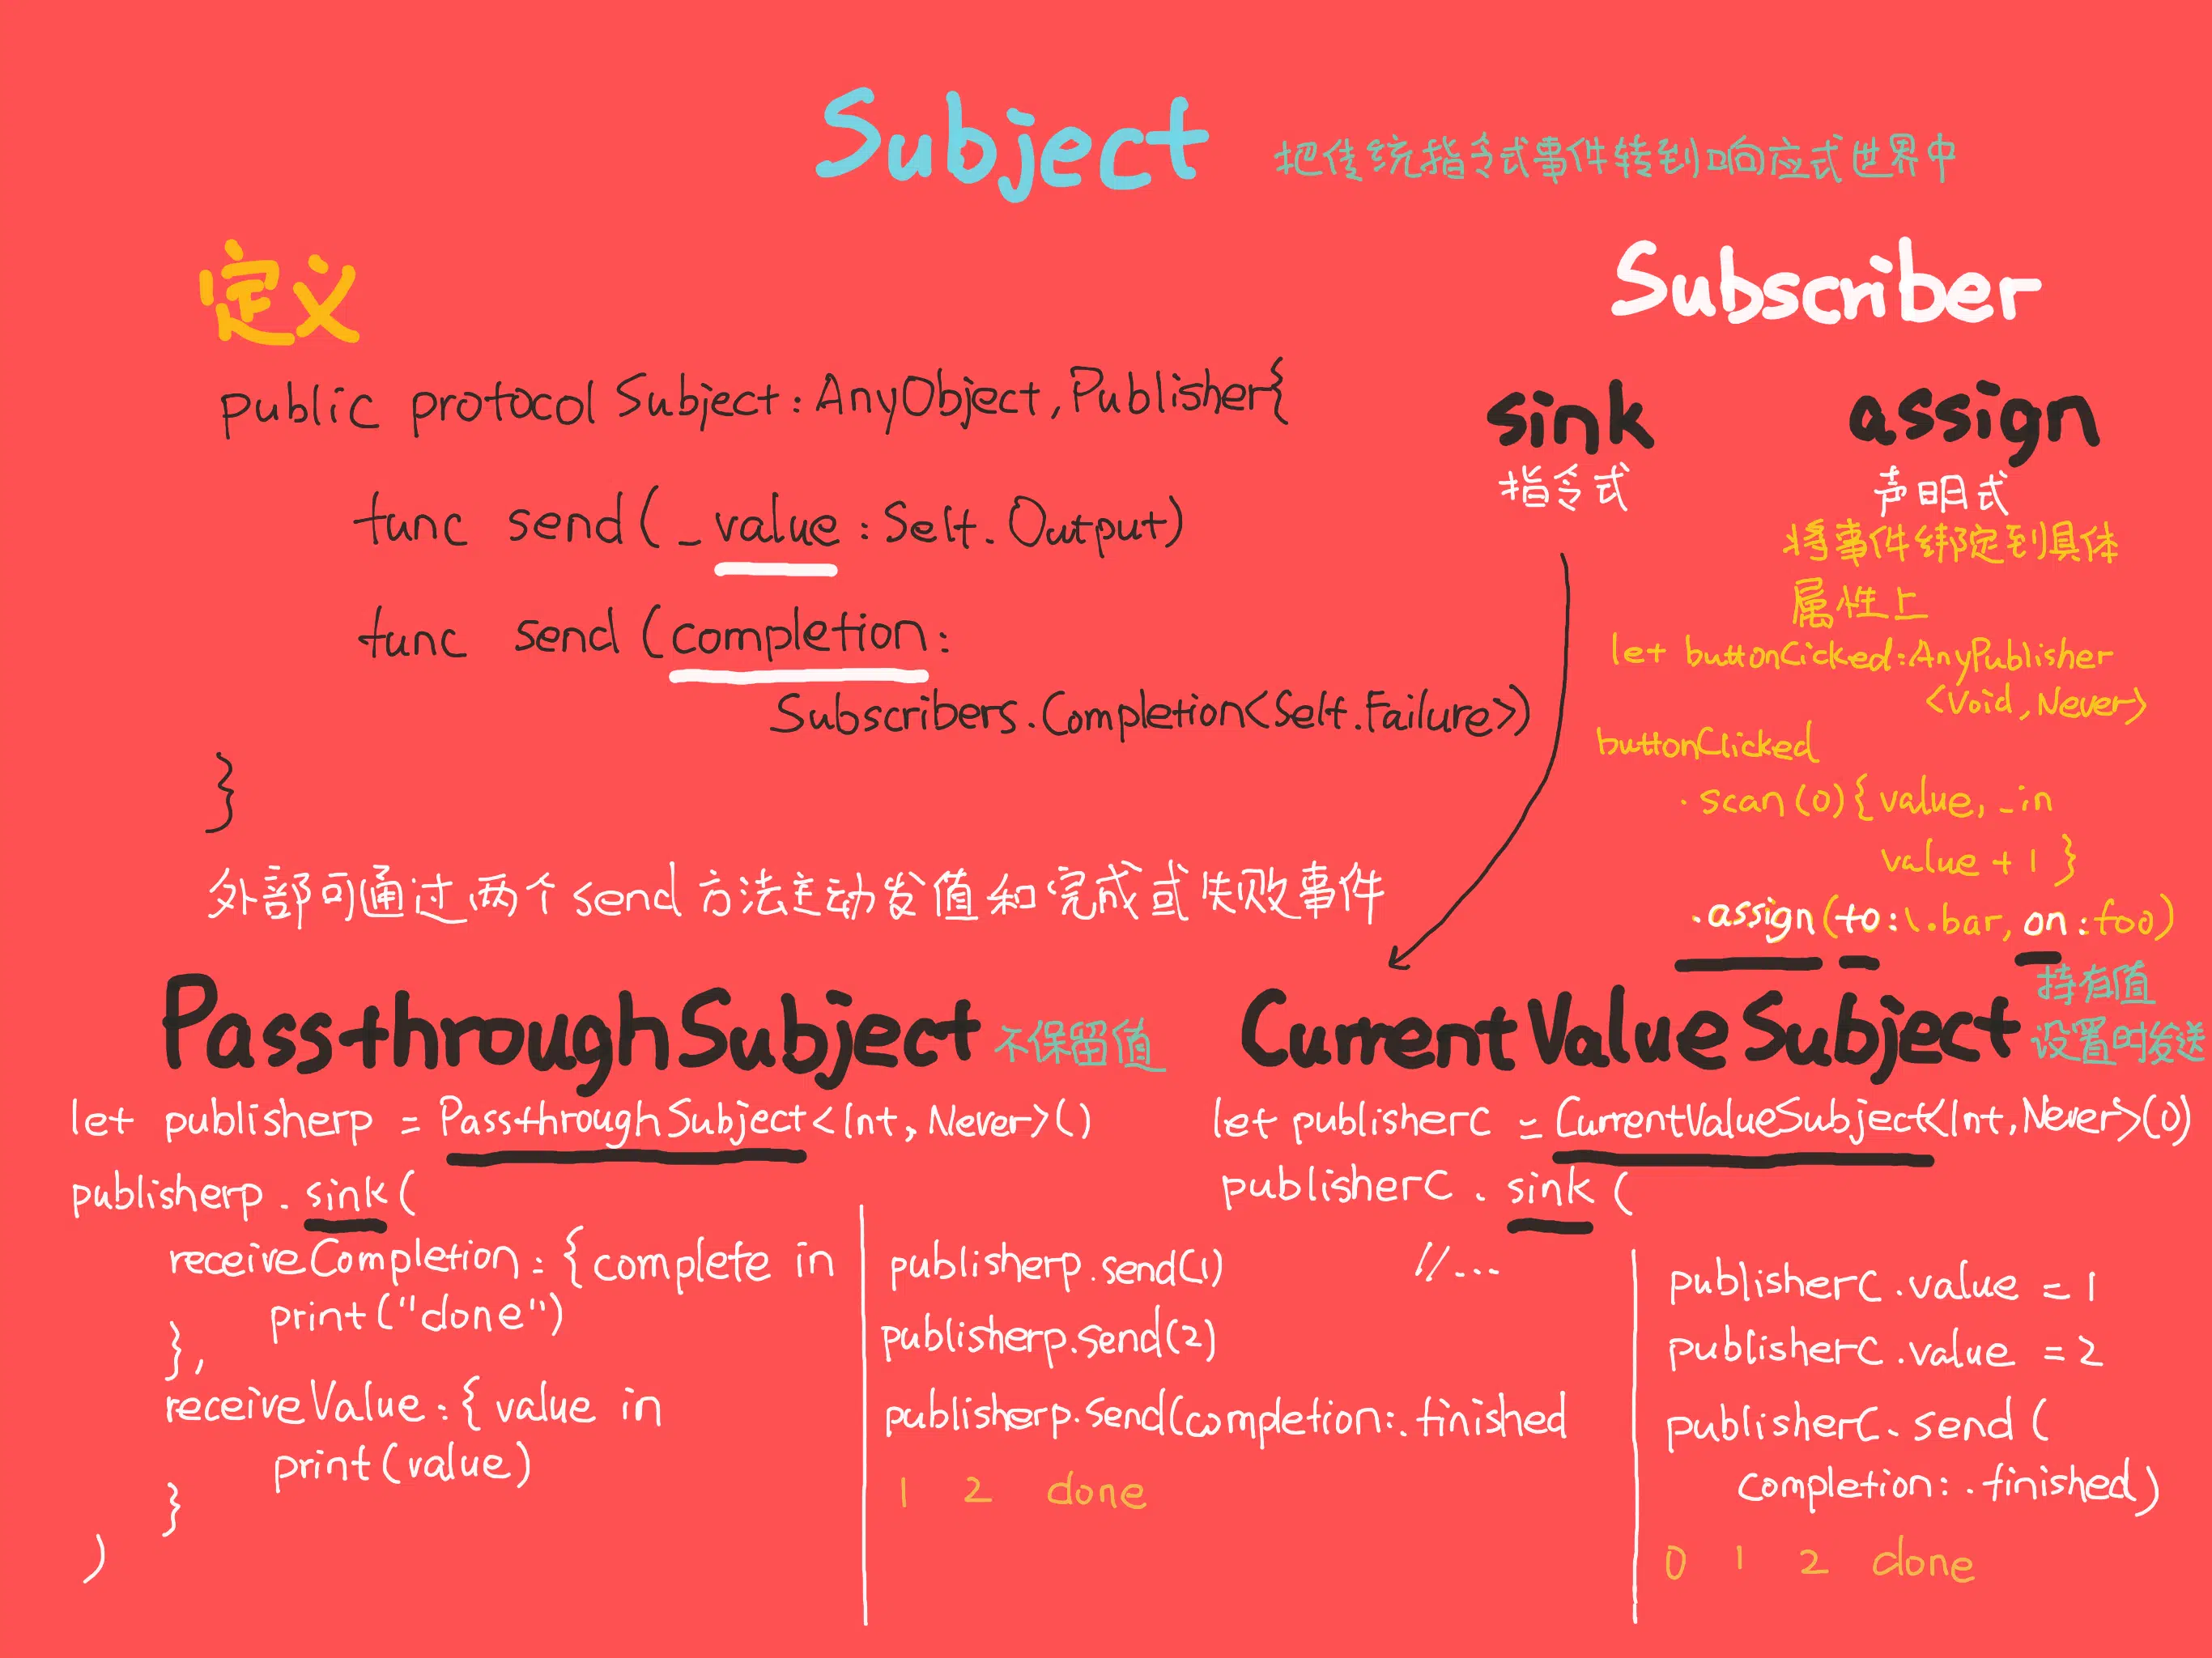 Subject 把传统指令式事件转到响应式世界中
定义
public protocol Subject:AnyObject,Publisher{
func send(_value:Self.Output)
func send(completion:
Subscribers.Completion<Self.Failure>)
}
外部可通过两个send方法主动发值和完成或失败事件
Subscriber
sink
指令式
assign
声明式
将事件绑定到具体
属性上
let buttonCicked:AnyPublisher
<Void,Never>
buttonClicked
.scan(0){value,_in
value+1}
.assign(to:\.bar,on:foo)
PassthroughSubject 不保留值
let publisherp = PassthroughSubject<Int,Never>()
publisherp.sink(
receiveCompletion:{complete in
print("done")
},
receiveValue:{value in
print(value)
}
)
publisherp.send(1)
publisherp.send(2)
publisherp.send(completion:.finished
1 2 done
CurrentValueSubject 持有值
设置时发送
let publisherC = CurrentValueSubject<Int,Never>(0)
publisherC.sink(
//...
publisherC.value = 1
publisherC.value = 2
publisherC.send(
completion:.finished)
0 1 2 done